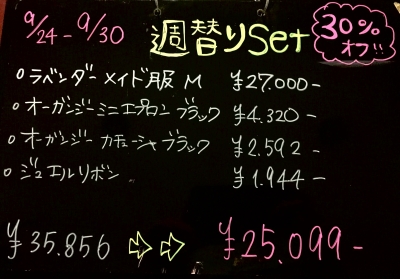 9/24-9/30 週替りSet 30%オフ!!
○ラベンダーメイド服 M ¥27.000-
○オーガンジーミニエプロン ブラック ¥4.320-
○オーガンジー カチューシャ ブラック ¥2.592-
○ジュエルリボン ¥1.944-
¥35.856 ⇨⇨ ¥25.099-